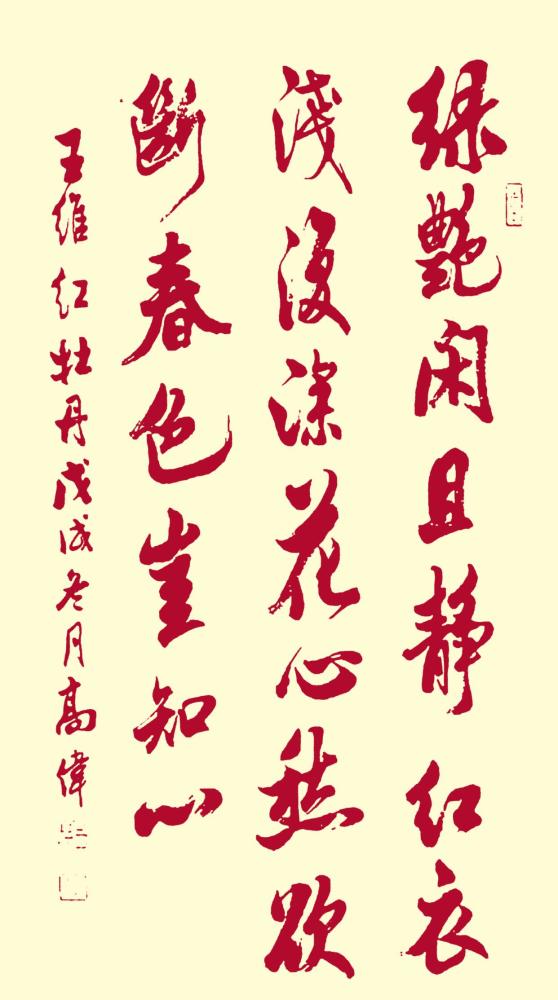 绿艳闲且静红衣
浅復深花心愁欲
斷春色豈知心
王维红牡丹戊戌冬月高偉